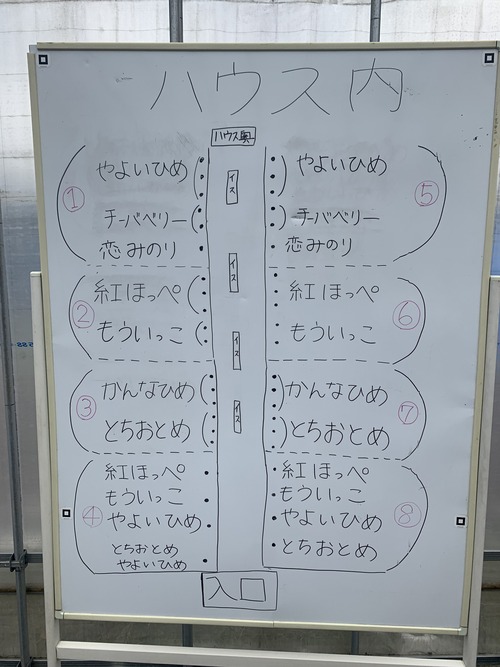 ハウス内
ハウス奥
①
やよいひめ
チーバベリー
恋みのり
②
紅ほっぺ
もういっこ
③
かんなひめ
とちおとめ
④
紅ほっぺ
もういっこ
やよいひめ
とちおとめ
やよいひめ
イス
イス
イス
イス
⑤
やよいひめ
チーバベリー
恋みのり
⑥
紅ほっぺ
もういっこ
⑦
かんなひめ
とちおとめ
⑧
紅ほっぺ
もういっこ
やよいひめ
とちおとめ
入口